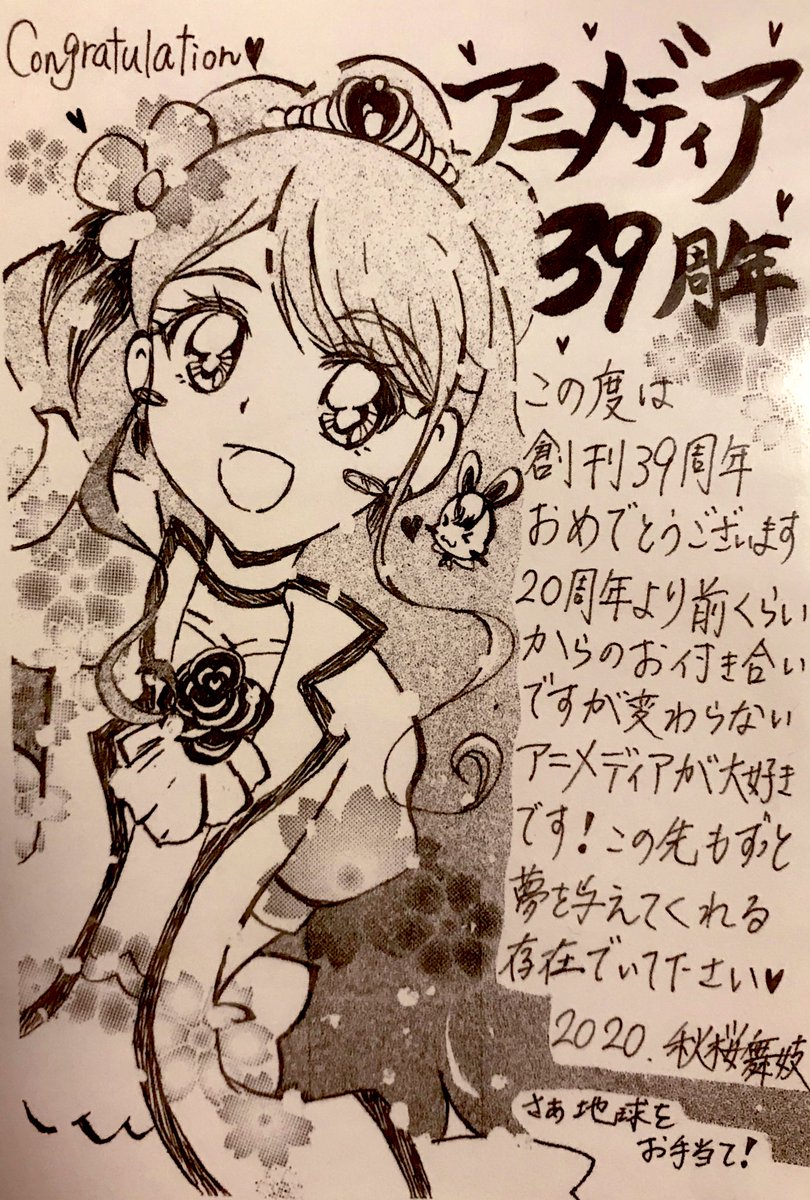 Congratulation♥
アニメディア
39周年
この度は
創刊39周年
おめでとうございます
20周年より前くらい
からのお付き合い
ですが変わらない
アニメディアが大好き
です!この先もずっと
夢を与えてくれる
存在でいて下さい♥
2020.秋桜舞妓
さぁ地球を
お手当て!